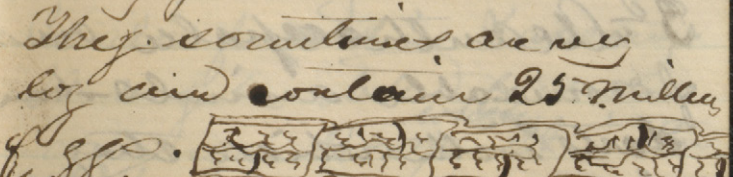 They. sometimes are very
log and contain 25 millions